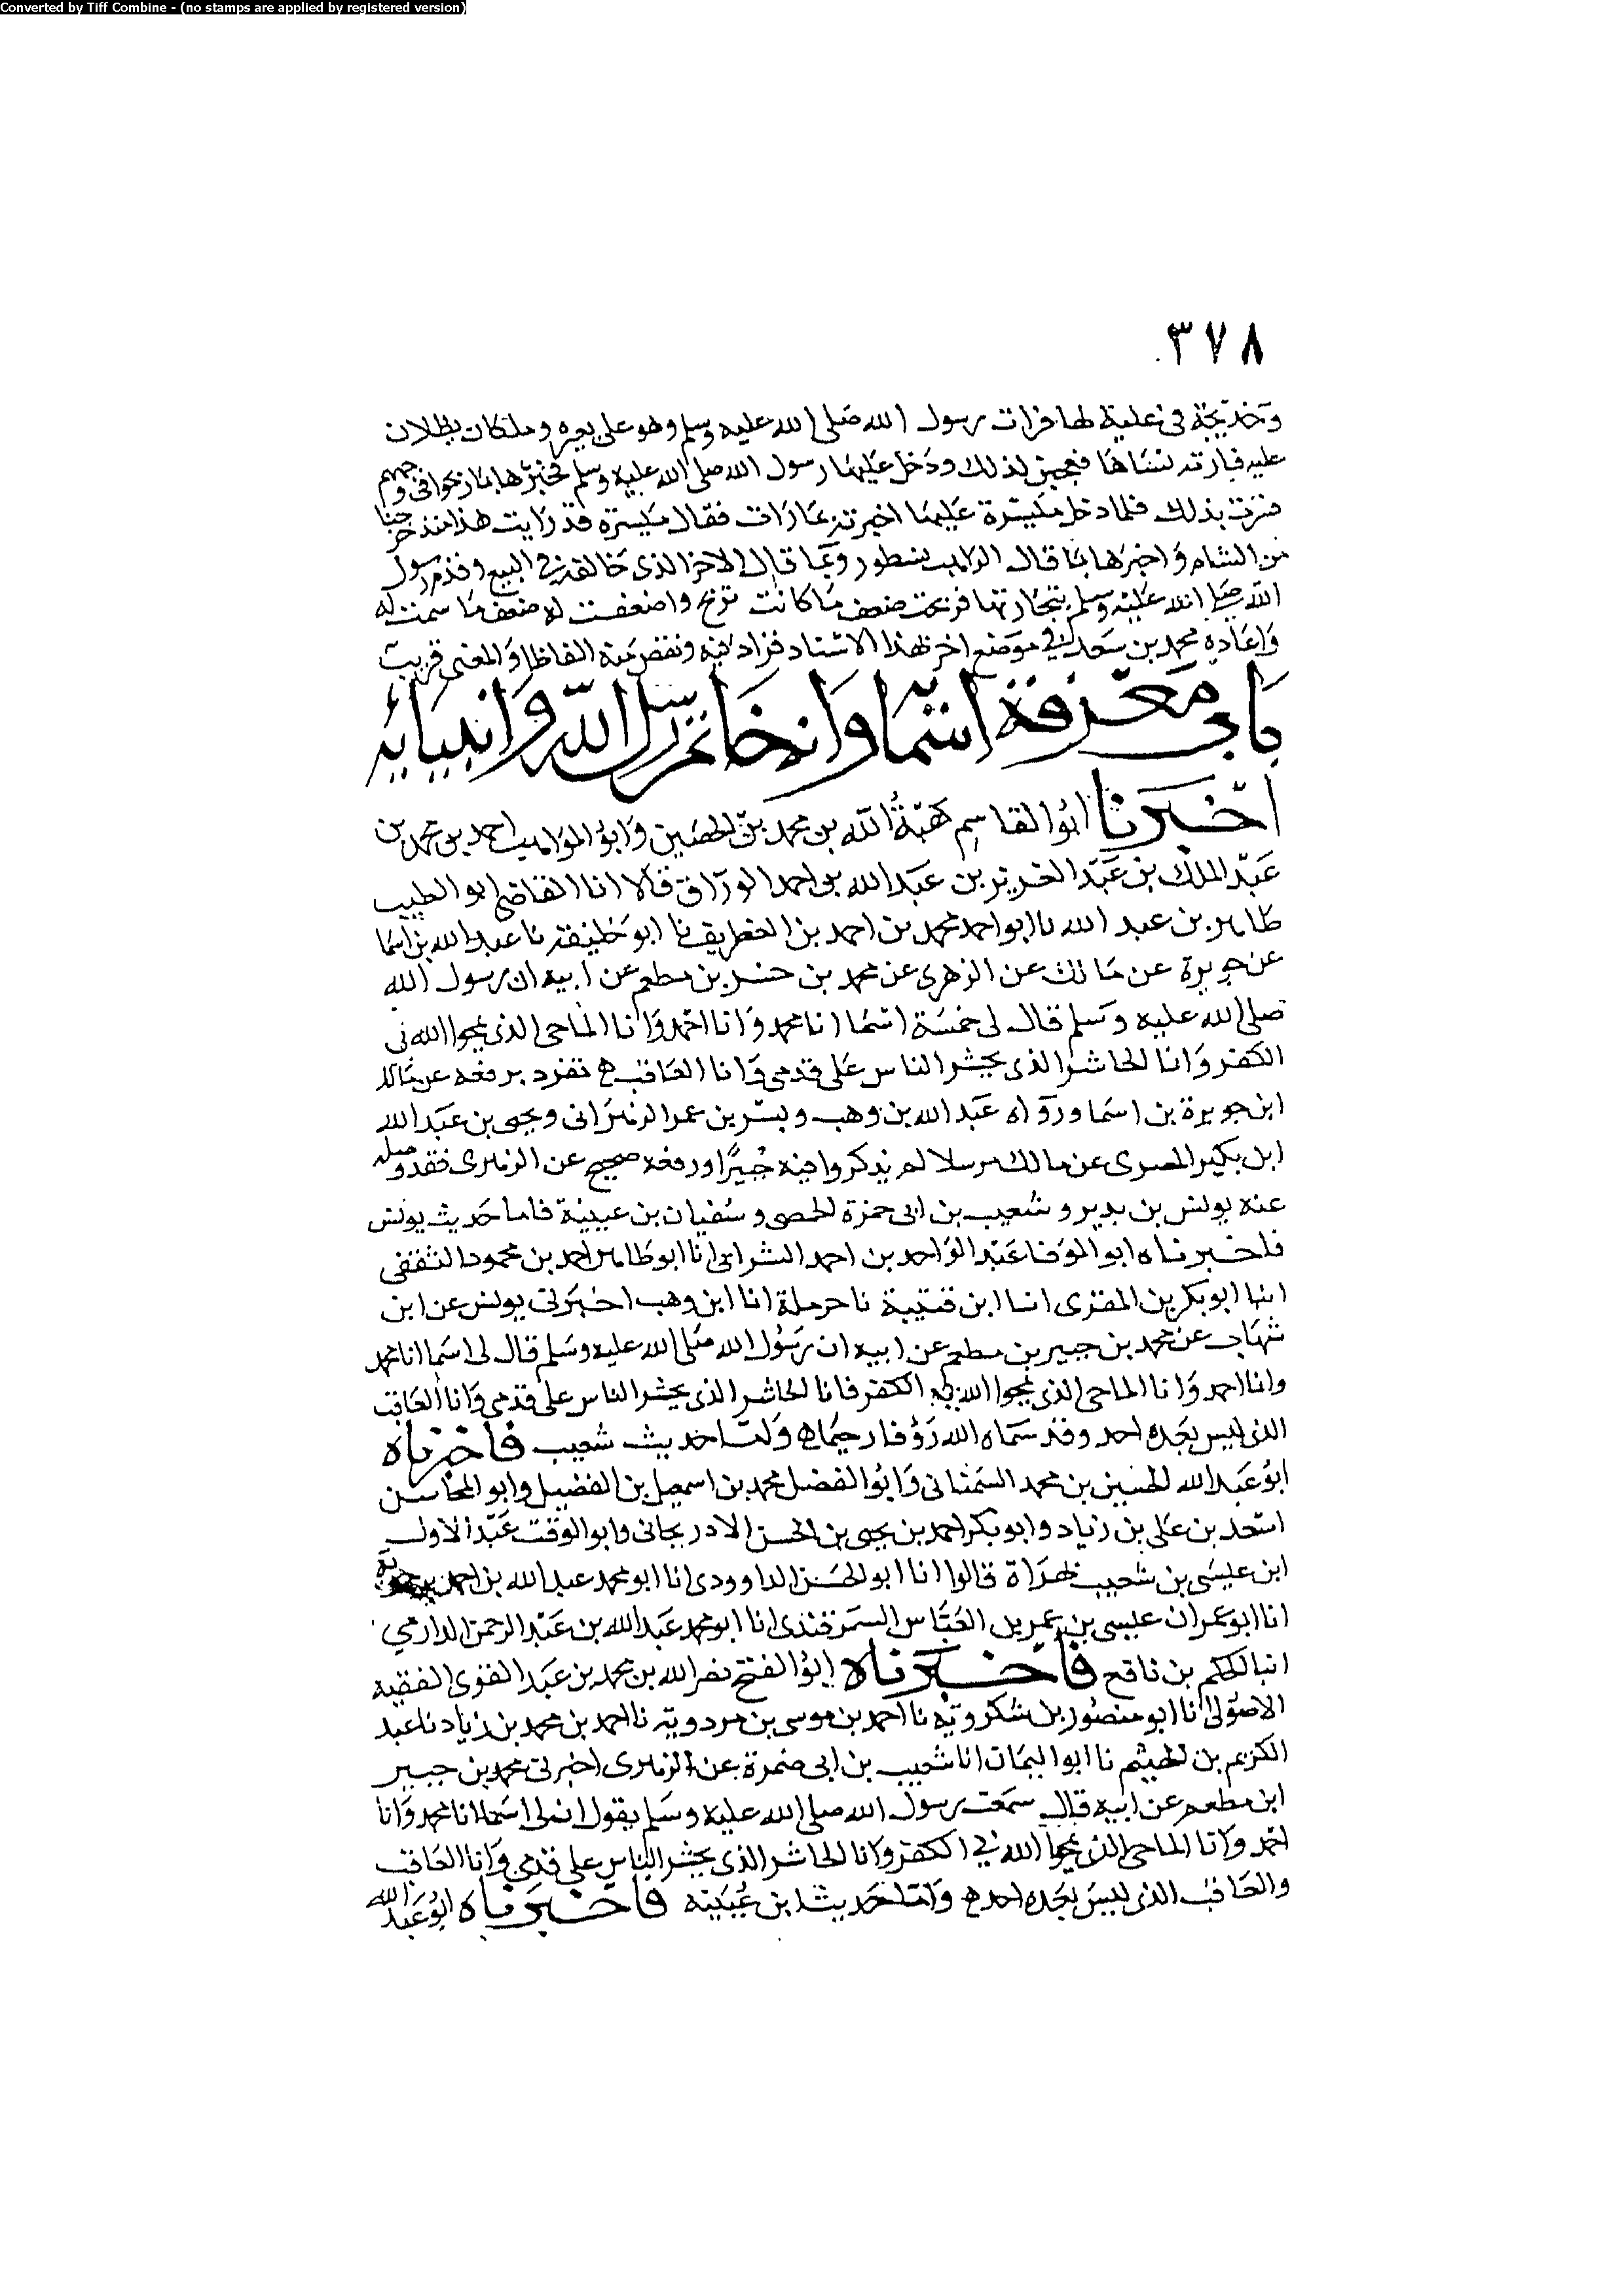 Converted by Tiff Combine - (no stamps are applied by registered version)
٣٧٨
وخديجة في علية لها فرات رسول الله صلى الله عليه وسلم وهو على بعيره وملكان يظلان
عليه فارته نساها فعجبن لذلك ودخل عليها رسول الله صلى الله عليه وسلم فخبرها بما ربحوا في وجههم
فسرت بذلك فلما دخل ميسرة عليها اخبرته بما رات فقال ميسرة قد رايت هذا منذ خرجنا
من الشام واخبرها بما قال الراهب نسطور وبما قال الاخر الذي خالفه في البيع وقدم رسول
الله صلى الله عليه وسلم بتجارتها فربحت ضعف ما كانت تربح واضعفت له ضعف ما سمت له
واعاده محمد بن سعد في موضع اخر بهذا الاسناد فزاد فيه ونقص منه الفاظا والمعنى قريب
باب معرفة اسمائه وانه خاتم رسل الله وانبيائه
اخبرنا ابو القاسم هبة الله بن محمد بن الحصين وابو المواهب احمد بن محمد بن
عبد الملك بن عبد العزيز بن عبد الله بن احمد الوراق قالا انا القاضي ابو الطيب
طاهر بن عبد الله نا ابو احمد محمد بن احمد بن الغطريف نا ابو خليفة نا عبد الله بن اسما
عن جويرة عن مالك عن الزهري عن محمد بن جبير بن مطعم عن ابيه ان رسول الله
صلى الله عليه وسلم قال لي خمسة اسما انا محمد وانا احمد وانا الماحي الذي يمحوا الله بي
الكفر وانا الحاشر الذي يحشر الناس على قدمي وانا العاقب تفرد برفعه عن مالك
ابن جويرة بن اسما ورواه عبد الله بن وهب وبشر بن عمر الزهراني ويحيى بن عبد الله
ابن بكير المصري عن مالك مرسلا لم يذكروا فيه جبيرا ورفعه صحيح عن الزهري فقد وصله
عنه يونس بن يزيد و شعيب بن ابي حمزة الحمصي و سفيان بن عيينة فاما حديث يونس
فاخبرناه ابو الوفا عبد الواحد بن احمد الشرابي انا ابو طاهر احمد بن محمود الثقفي
انبا ابو بكر بن المقرى انبا ابن قتيبة نا حرملة انا ابن وهب اخبرني يونس عن ابن
شهاب عن محمد بن جبير بن مطعم عن ابيه ان رسول الله صلى الله عليه وسلم قال لي اسما انا محمد
وانا احمد وانا الماحي الذي يمحوا الله بي الكفر فانا الحاشر الذي يحشر الناس على قدمي وانا العاقب
الذي ليس بعده احد وقد سماه الله رؤفا رحيما واما حديث شعيب فاخبرناه
ابو عبد الله الحسين بن محمد السمناني وابو الفضل محمد بن اسمعيل بن الفضيل وابو المحاسن
اسعد بن علي بن زياد وابو بكر احمد بن يحيى بن الحسن الادربجاني وابو الوقت عبد الاول
ابن عيسى بن شعيب بهراة قالوا انا ابو الحسن الداوودي انا ابو محمد عبد الله بن احمد بن حمويه
انا ابو عمران عيسى بن عمر بن العباس السمرقندي انا ابو محمد عبد الله بن عبد الرحمن الدارمي
انبا الحكم بن نافع فاخبرناه ابو الفتح نصر الله بن محمد بن عبد القوى الفقيه
الاصولي انا ابو منصور بن شكرويه نا احمد بن موسى بن مردويه نا احمد بن محمد بن زياد نا عبد
الكريم بن الهيثم نا ابو اليمان انا شعيب بن ابي ضمرة عن الزهري اخبرني محمد بن جبير
ابن مطعم عن ابيه قال سمعت رسول الله صلى الله عليه وسلم يقول ان لي اسما انا محمد وانا
احمد وانا الماحي الذي يمحوا الله بي الكفر وانا الحاشر الذي يحشر الناس على قدمي وانا العاقب
والعاقب الذي ليس بعده احد واما حديث ابن عيينه فاخبرناه ابو عبد الله